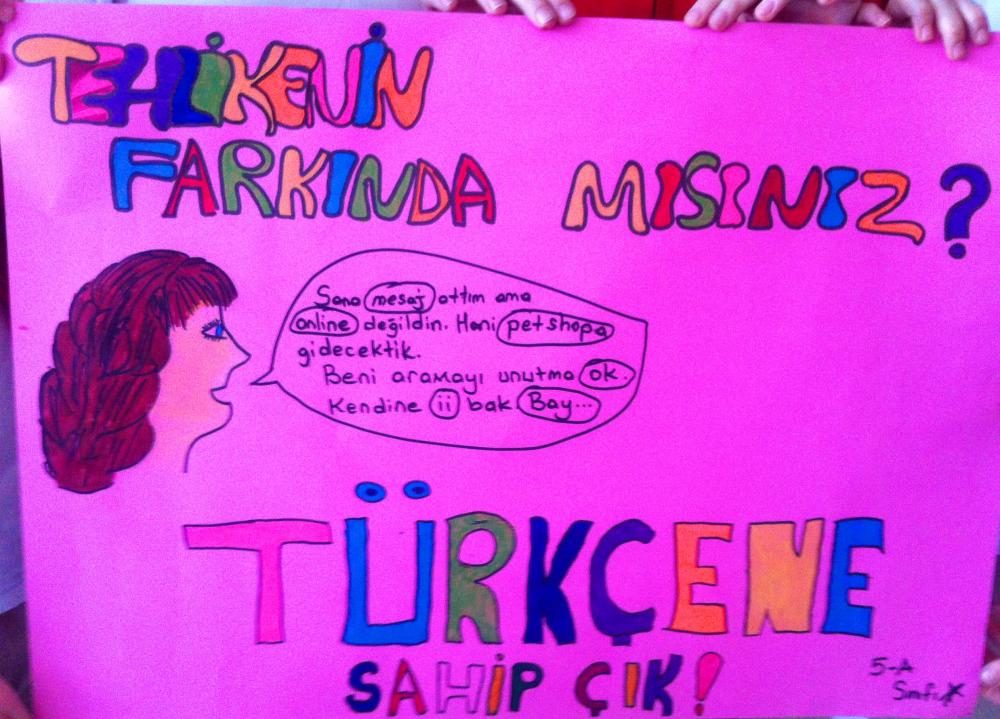 TEHLİKENİN
FARKINDA MISINIZ?
Sana mesaj attım ama
online değildin. Hani petshopa
gidecektik.
Beni aramayı unutma ok.
Kendine ii bak Bay...
TÜRKÇENE
SAHİP ÇIK!
5-A
Sınıfı